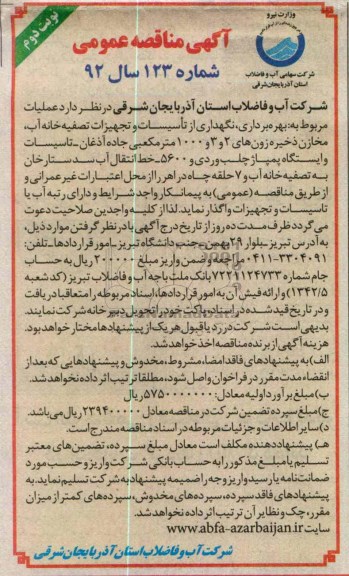 نوبت دوم
وزارت نیرو
شرکت سهامی آب و فاضلاب
استان آذربایجان شرقی
آگهی مناقصه عمومی
شماره ۱۲۳ سال ۹۲
شرکت آب و فاضلاب استان آذربایجان شرقی در نظر دارد عملیات
مربوط به: بهره برداری، نگهداری از تأسیسات و تجهیزات تصفیه خانه آب،
مخازن ذخیره زون های ۲ و ۳ و ۱۰۰۰ متر مکعبی جاده آذغان - تاسیسات
و ایستگاه پمپاژ چلب وردی و ۵۶۰۰ - خط انتقال آب سد ستارخان
به تصفیه خانه آب و ۷ حلقه چاه در اهر را از محل اعتبارات غیر عمرانی و
از طریق مناقصه (عمومی) به پیمانکار واجد شرایط و دارای رتبه آب یا
تاسیسات و تجهیزات واگذار نماید. لذا از کلیه واجدین صلاحیت دعوت
می گردد ظرف مدت ده روز از تاریخ درج آگهی با در نظر گرفتن موارد ذیل،
به آدرس تبریز - بلوار ۲۹ بهمن - جنب دانشگاه تبریز - امور قراردادها - تلفن:
۳۳۰۴۰۹۱-۰۴۱۱ مراجعه و ضمن واریز مبلغ ۲۰۰۰۰۰ ریال به حساب
جام شماره ۷۲۲۱۱۲۴۷۳۳ بانک ملت باجه آب و فاضلاب تبریز (کد شعبه
۱۳۴۲/۵) و ارائه فیش آن به امور قراردادها، اسناد مربوطه را متعاقبا دریافت
و در تاریخ قید شده در اسناد، پاکت خود را تحویل دبیرخانه شرکت نمایند.
بدیهی است شرکت در رد یا قبول هر یک از پیشنهادها مختار خواهد بود.
هزینه آگهی از برنده مناقصه اخذ خواهد شد.
الف) به پیشنهادهای فاقد امضاء، مشروط، مخدوش و پیشنهادهایی که بعد از
انقضاء مدت مقرر در فراخوان واصل شود، مطلقا ترتیب اثر داده نخواهد شد.
ب) مبلغ برآورد اولیه معادل: ۵۷۵۰۰۰۰۰۰۰ ریال
ج) مبلغ سپرده تضمین شرکت در مناقصه معادل ۲۳۹۴۰۰۰۰۰ ریال می باشد.
د) سایر اطلاعات و جزئیات مربوطه در اسناد مناقصه مندرج است.
هـ) پیشنهاد دهنده مکلف است معادل مبلغ سپرده، تضمین های معتبر
تسلیم یا مبلغ مذکور را به حساب بانکی شرکت واریز و حسب مورد
ضمانت نامه یا رسید واریز وجه را ضمیمه پیشنهاد به شرکت تسلیم نماید. به
پیشنهادهای فاقد سپرده، سپرده های مخدوش، سپرده های کمتر از میزان
مقرر، چک و نظایر آن ترتیب اثر داده نخواهد شد.
سایت www.abfa-azarbaijan.ir
شرکت آب و فاضلاب استان آذربایجان شرقی